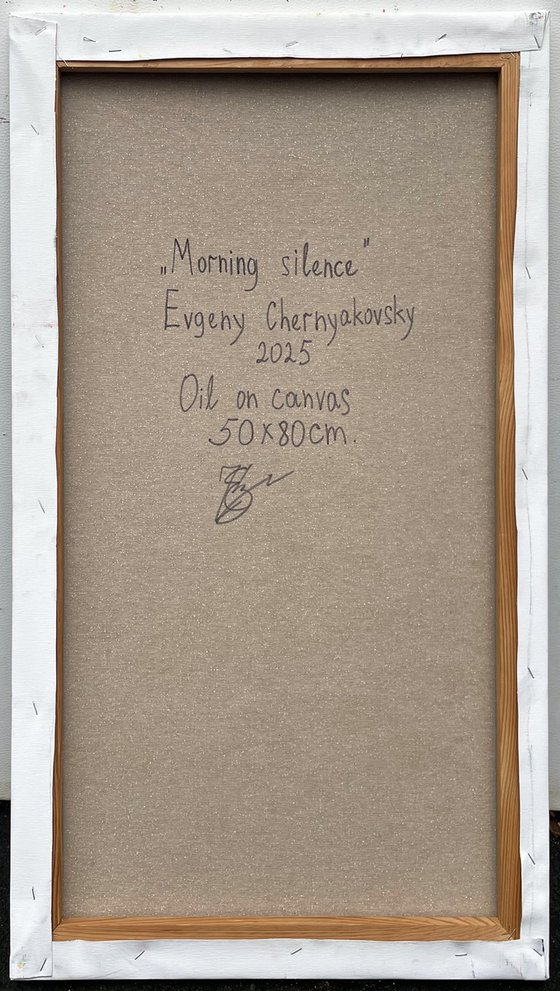 „Morning silence"
Evgeny Chernyakovsky
2025
Oil on canvas
50x80cm.